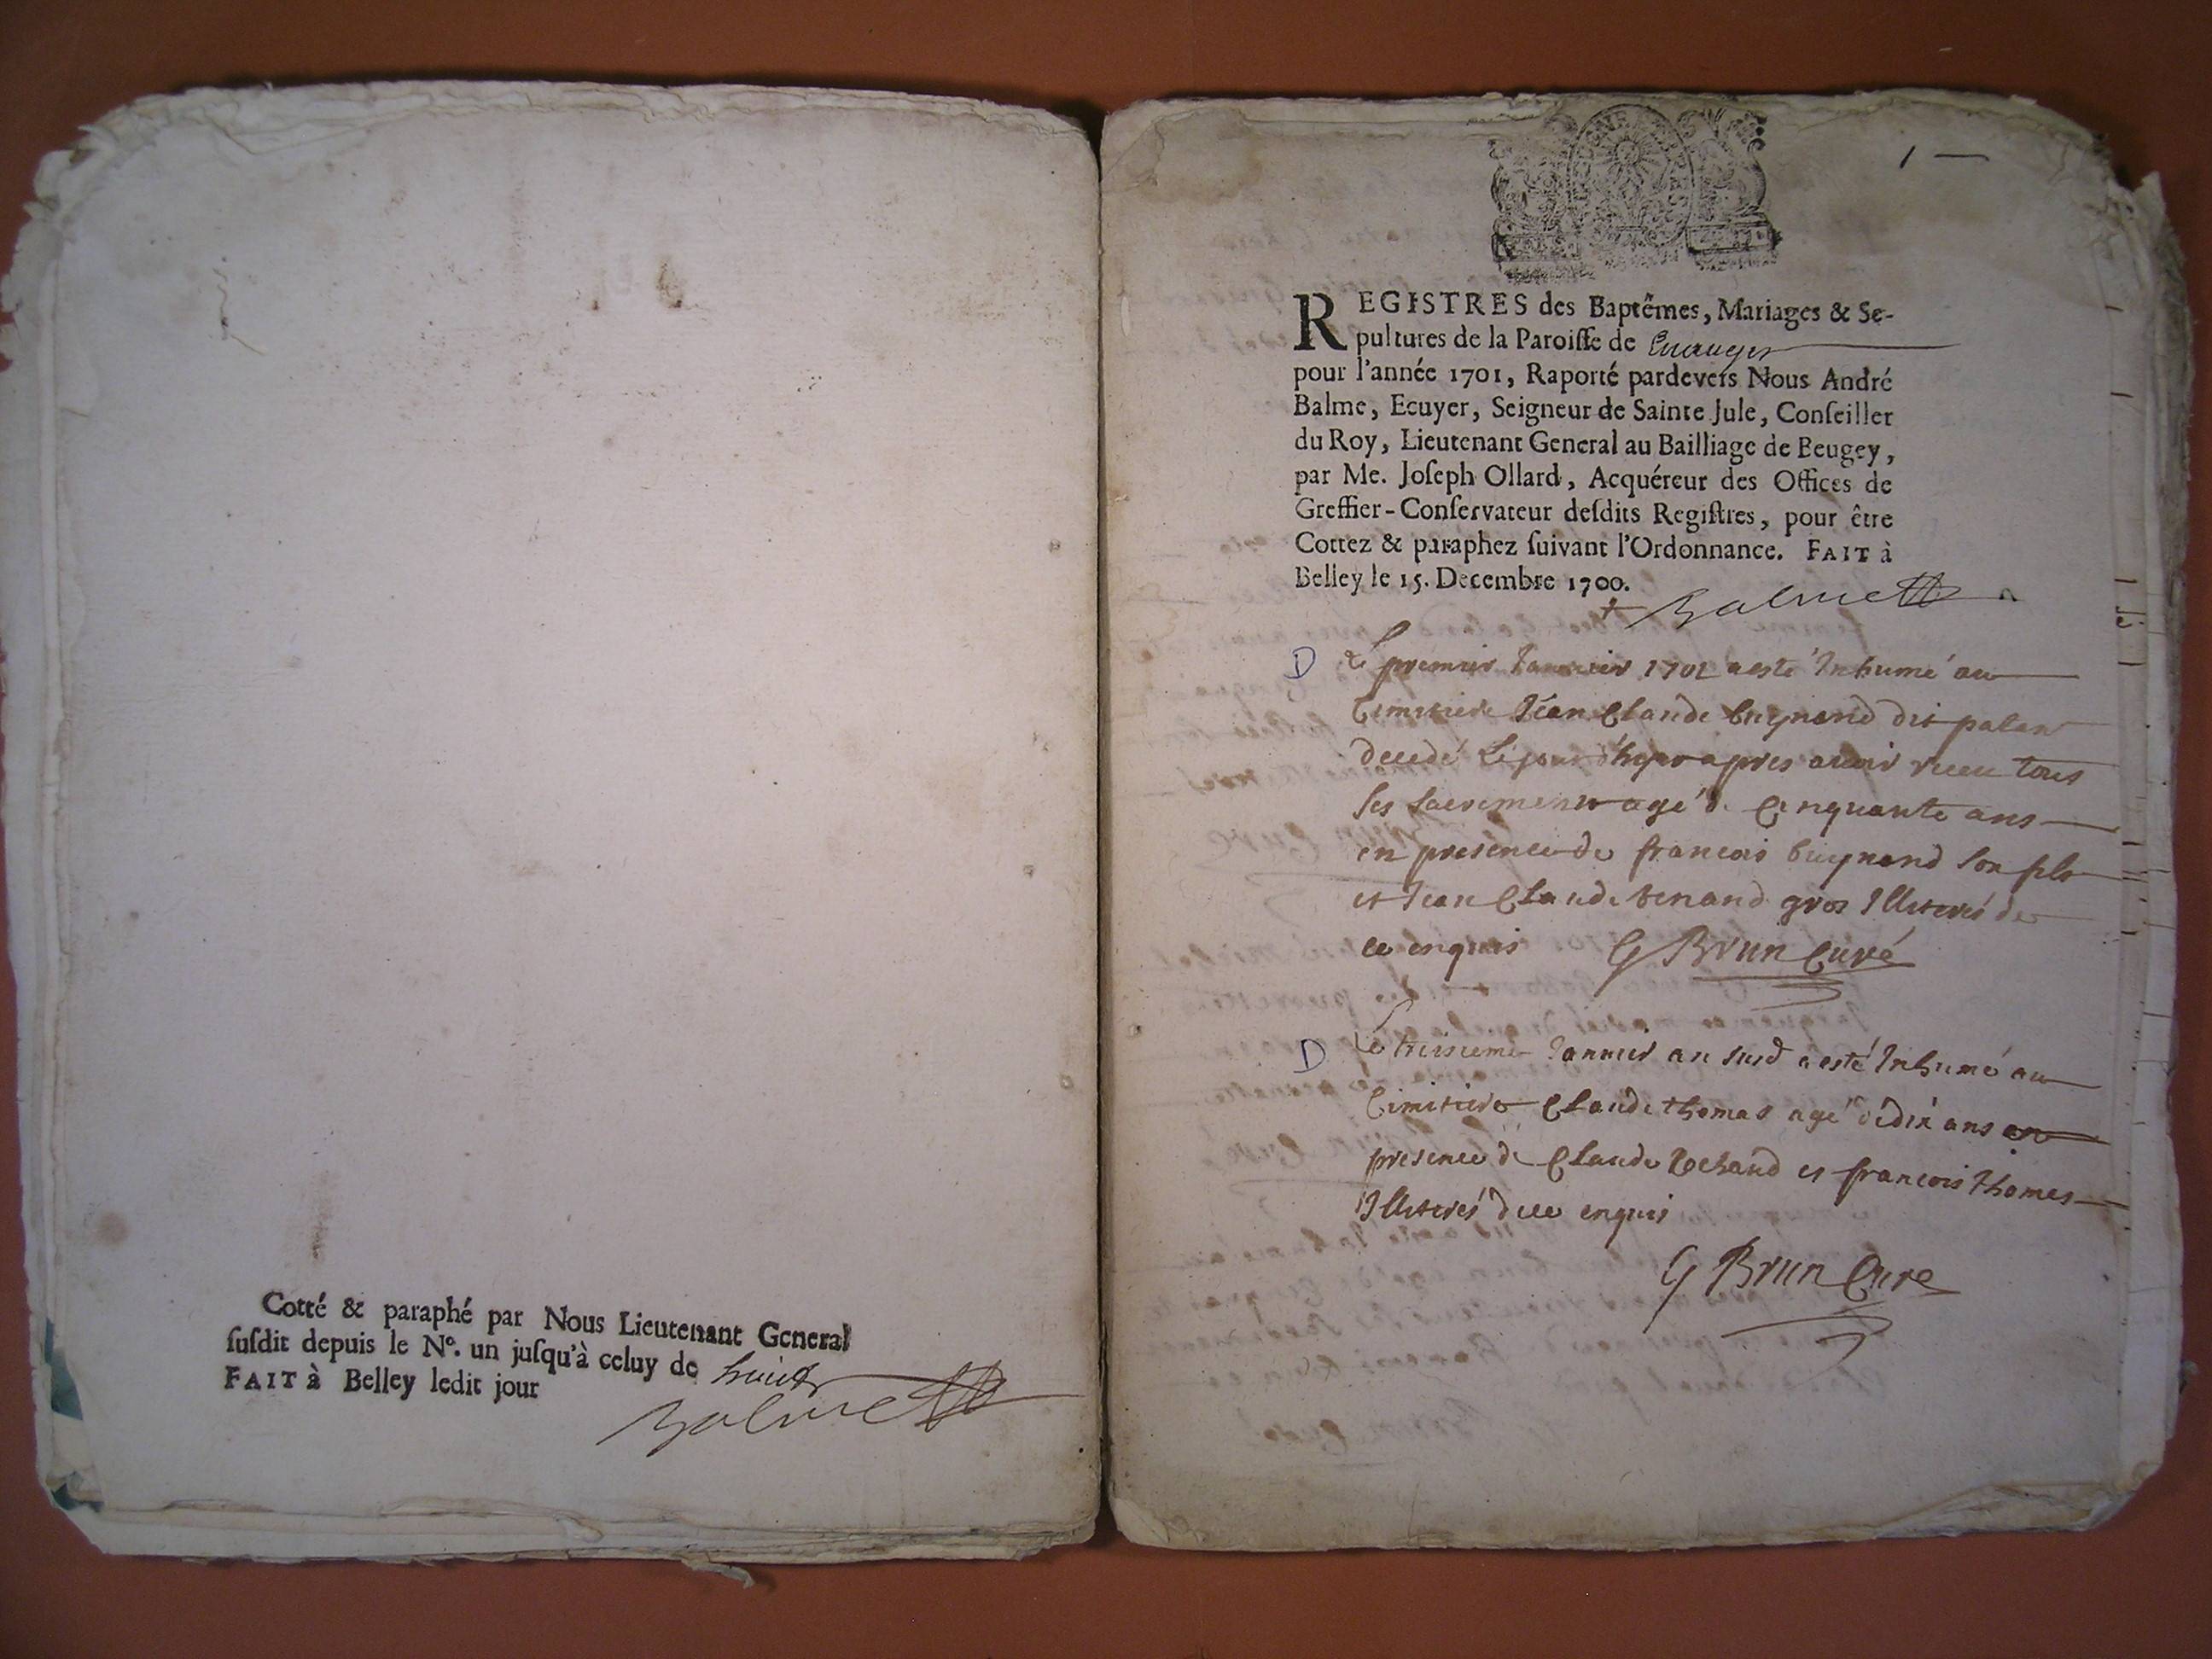 Cotté & paraphé par Nous Lieutenant General
ſuſdit depuis le N°. un juſqu'à celuy de huict
FAIT à Belley ledit jour
Balme
1
REGISTRES des Baptêmes, Mariages & Se-
pultures de la Paroiſſe de
pour l'année 1701, Raporté pardevers Nous André
Balme, Ecuyer, Seigneur de Sainte Jule, Conſeiller
du Roy, Lieutenant General au Bailliage de Beugey,
par Me. Joſeph Ollard, Acquéreur des Offices de
Greffier-Conſervateur deſdits Regiſtres, pour être
Cottez & paraphez ſuivant l'Ordonnance. FAIT à
Belley le 15. Decembre 1700.
Balme
D Le premier Januier 1701 a esté Inhumé au
Cimitiere Jean Claude buynand dit
decedé le jour d'hyer apres auoir receu tous
ses sacrements agé de Cinquante ans
en presence de francois buynand son fils
et Jean Claude benand gros Illiterés de
ce enquis G Brun Curé
D Le troisieme Januier an susd a esté Inhumé au
Cimitiere Claude thomas agé de dix ans en
presence de Claude et francois thomas
Illiterés de ce enquis
G Brun Cure